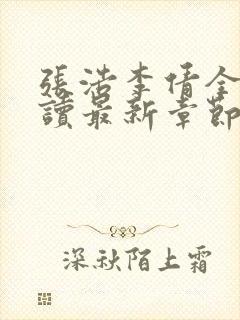 張浩李倩全
讀最新章節
深秋陌上霜